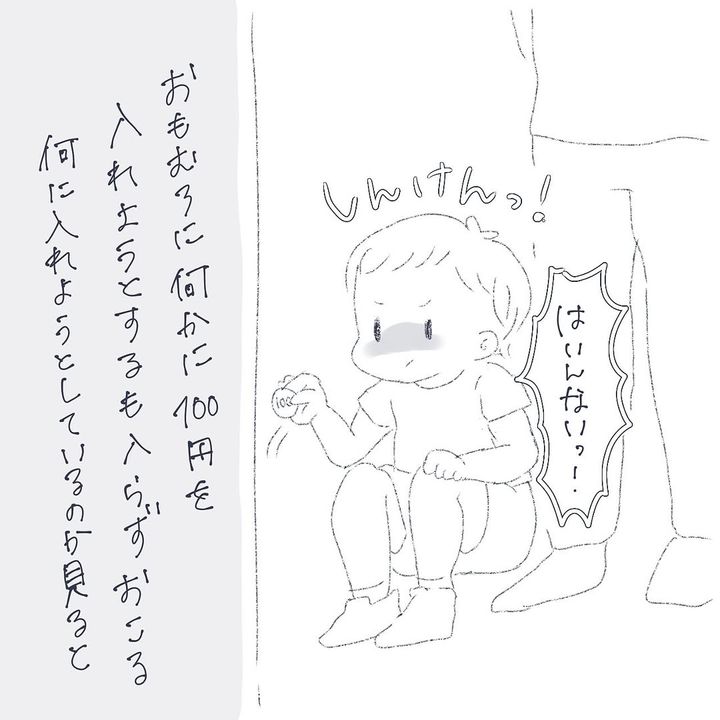 おもむろに何かに100円を
入れようとするも入らずおこる
何に入れようとしているのか見ると
しんけんっ!
はいんないっ!
100